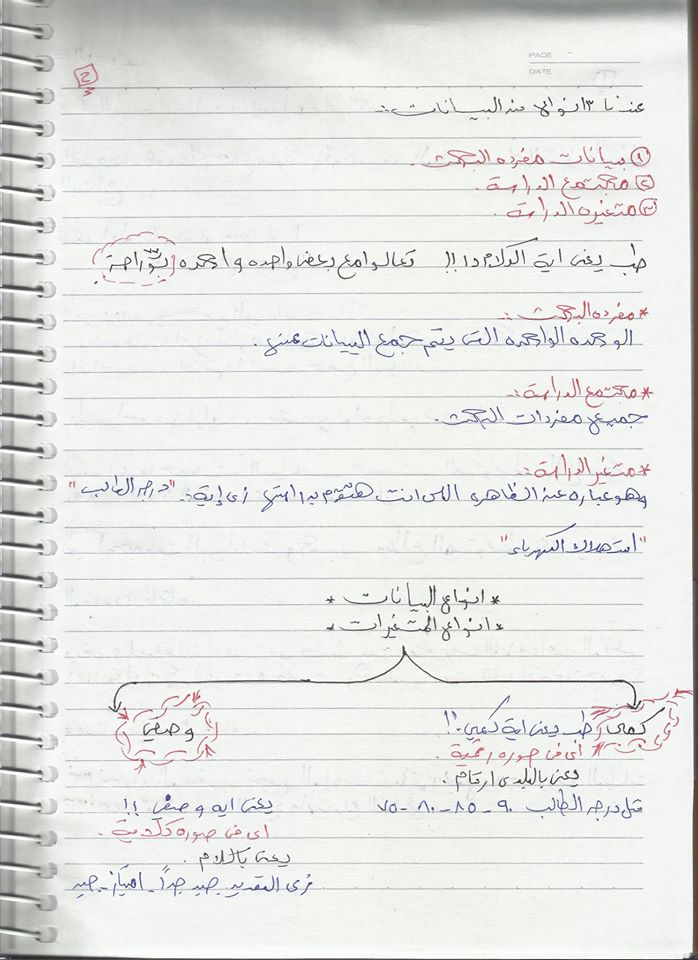 PAGE
DATE
2
عندنا ٣ انواع من البيانات :-
① بيانات مفرده البحث .
② مجتمع الدراسة .
③ متغيره الدراسة .
طب يعنى اية الكلام دا !! تعالوا مع بعض واحده واحده بـرّاحة
* مفرده البحث :-
الوحده الواحده التى يتم جمع البيانات عنها .
* مجتمع الدراسة :-
جميع مفردات البحث .
* متغير الدراسة :-
وهو عباره عن الظاهره اللى انت هتقوم بدراستها زى إية :- "درجه الطالب"
"استهلاك الكهرباء"
* انواع البيانات *
* انواع المتغيرات *
كمى طب يعنى اية كمي !! وصفي
أى فى صوره رقمية .
يعنى بالبلدى ارقام .
مثل درجه الطالب ٩٠ - ٨٥ - ٨٠ - ٧٥
يعنى ايه وصفي !!
اى فى صوره كلامية .
يعنى بالكلام .
زى التقدير جيد جداً - امتياز - جيد